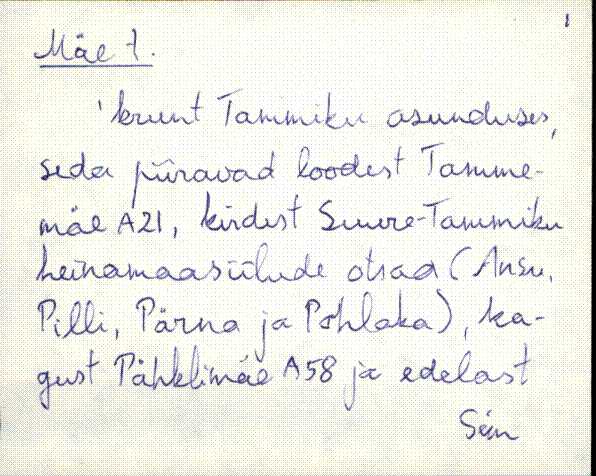 1
Mäe t.
'krunt Tammiku asunduses,
seda piiravad loodest Tamme-
mäe A21, kirdest Suure-Tammiku
heinamaasiilude otsad (Ansu,
Pilli, Pärna ja Põhlaka), ka-
gust Pähklimäe A58 ja edelast